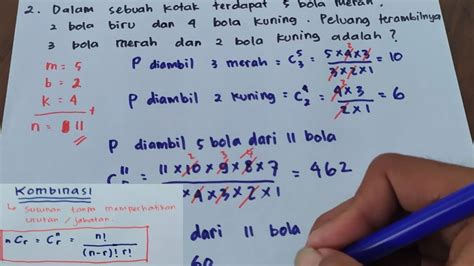 2. Dalam sebuah kotak terdapat 5 bola merah.
2 bola biru dan 4 bola kuning. Peluang terambilnya
3 bola merah dan 2 bola kuning adalah?
m = 5
b = 2
k = 4 +
n = 11
P diambil 3 merah = C 5 3 = 5×4×3 / 3×2×1 = 10
P diambil 2 kuning = C 4 2 = 4×3 / 2×1 = 6
P diambil 5 bola dari 11 bola
C 11 = 11×10×9×8×7 / ×4×3×2×1 = 462
Kombinasi
↳ Susunan tanpa memperhatikan
urutan / jabatan.
nCr = C n r = n! / (n-r)! r!
dari 11 bola
60